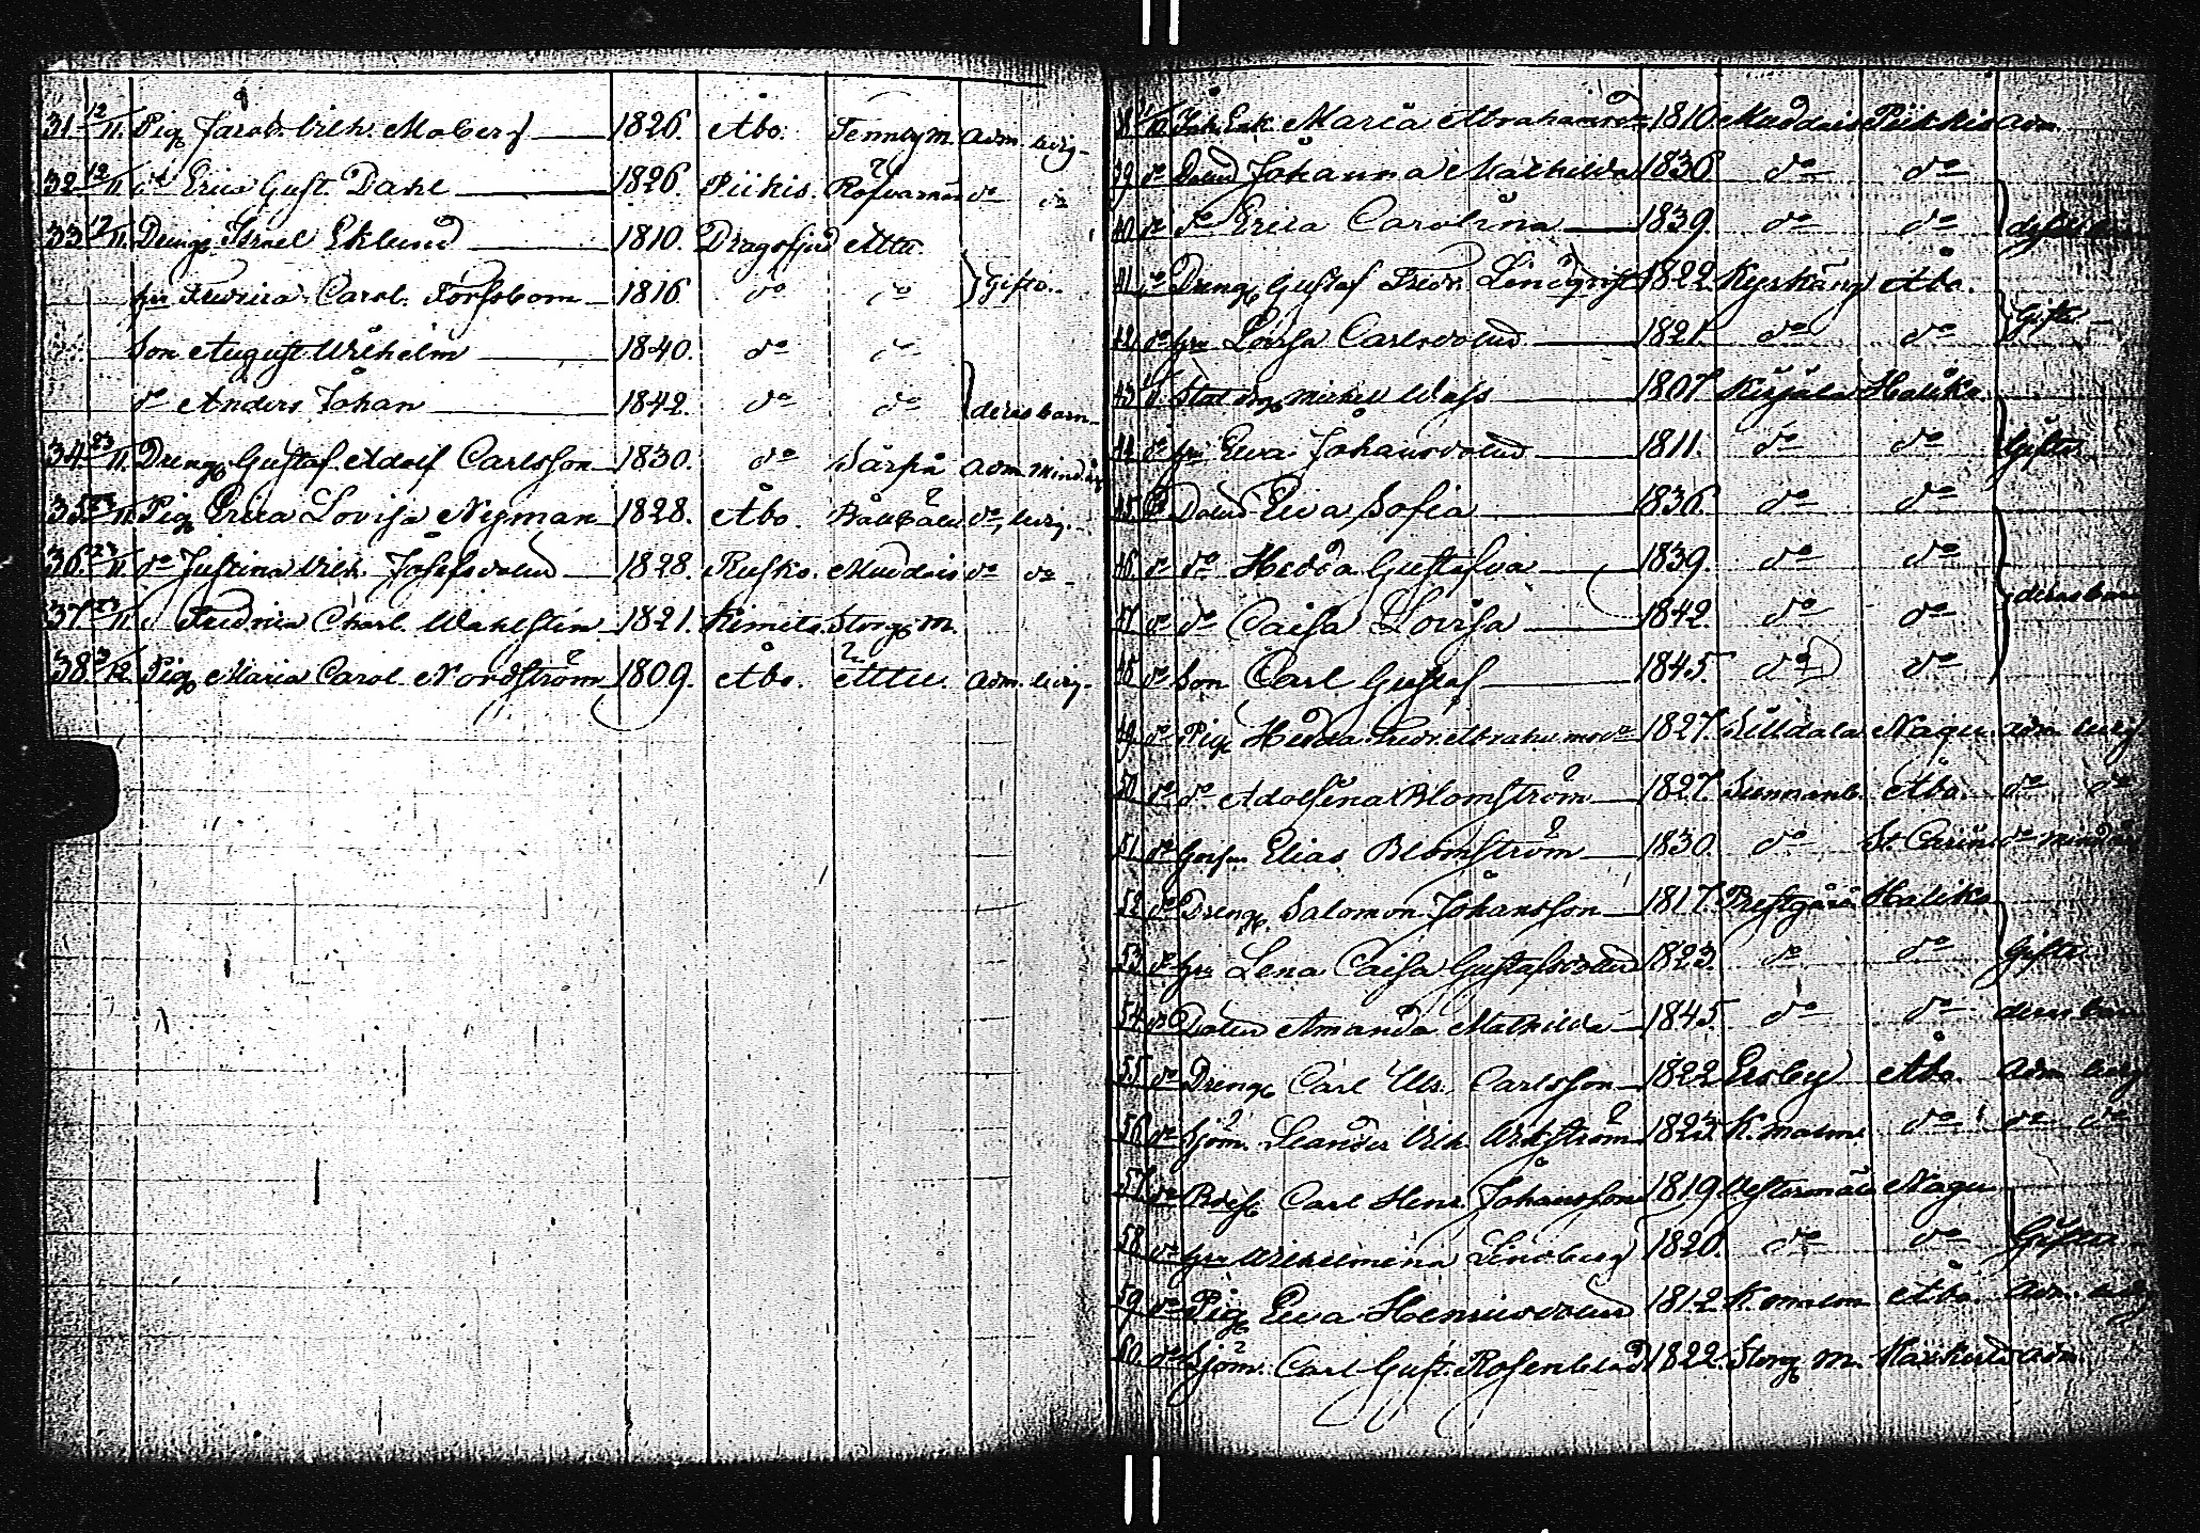 31. 12/11. Pig. Jacob. Vilh. Moberg 1826. Åbo. Tennäjm. adm. ledig
32 12/11 do Erica Gust. Dahl 1826. Piikis. do do
33 12/11. Dreng. Israel Eklund 1810. Dragsfjerd Attu.
hu Fredrica Carol. Forssbom 1816 do do Gifta.
Son August Wilhelm 1840. do do
do Anders Johan 1842. do do deras barn
34. 23/11. Dreng. Gustaf Adolf Carlsson 1830. do Särkå adm. mind.
35. 23/11 Pig. Erica Lovisa Nyman 1828. Åbo. do ledig.
36. 23/11. do Justina Vilh. Josefsdoter 1828. Rusko. Muddais do do
37. 23/11 Fredrica Charl. Wahlstén 1821. Kimito. Storg. m.
38 3/12. Pig. Maria Carol. Nordström 1809. Åbo. Attu. adm. ledig.
Enk. Maria Abrahamsd. 1810 Muddais Piikkis adm.
39 do Doter Johanna Mathilda 1836 do do
40 do do Erica Carolina 1839. do do
41 do Dreng. Gustaf Fredr. Lindqvist 1822. Kyrkäng Åbo.
42 do hu Lovisa Carlsdoter 1821 do do Gifta
43 Stat drg. Michell Wass 1807 Kirjala Haliko
44 do hu Eva Johansdoter 1811. do do Gifta
45 do Doter Eva Sofia 1836. do do
46 do do Hedda Gustafva 1839. do do
47 do do Caisa Lovisa 1842 do do deras barn
48 do Son Carl Gustaf 1845. do do
49. do Pig. Hedda Fredr. Abrahamsdr 1827. Lilldala Nagu. adm. ledig.
50 do do Adolfina Blomström 1827. Åbo. do do
51 do Goss. Elias Blomström 1830. do St. Carins do mind
52 do Dreng. Salomon Johansson 1817. Prestgård Haliko
53 do hu Lena Caisa Gustafsdoter 1823. do do Gifta
54 do Doter Amanda Mathilda 1845. do do deras barn
55 do Dreng. Carl Ulr. Carlsson 1822 Ersby Åbo. adm. ledig
56 do Sjöm. Leander Vilh. Wikström 1823. K. malm do do do
57 do Carl Henr. Johansson 1819 Nagu
58 do hu Wilhelmina Lindberg 1820. do do Gifta
59 do Pig. Eva Henricsdoter 1812 Åbo. adm.
60. do Sjöm. Carl Gust. Rosenblad 1822. Storg. m. adm.